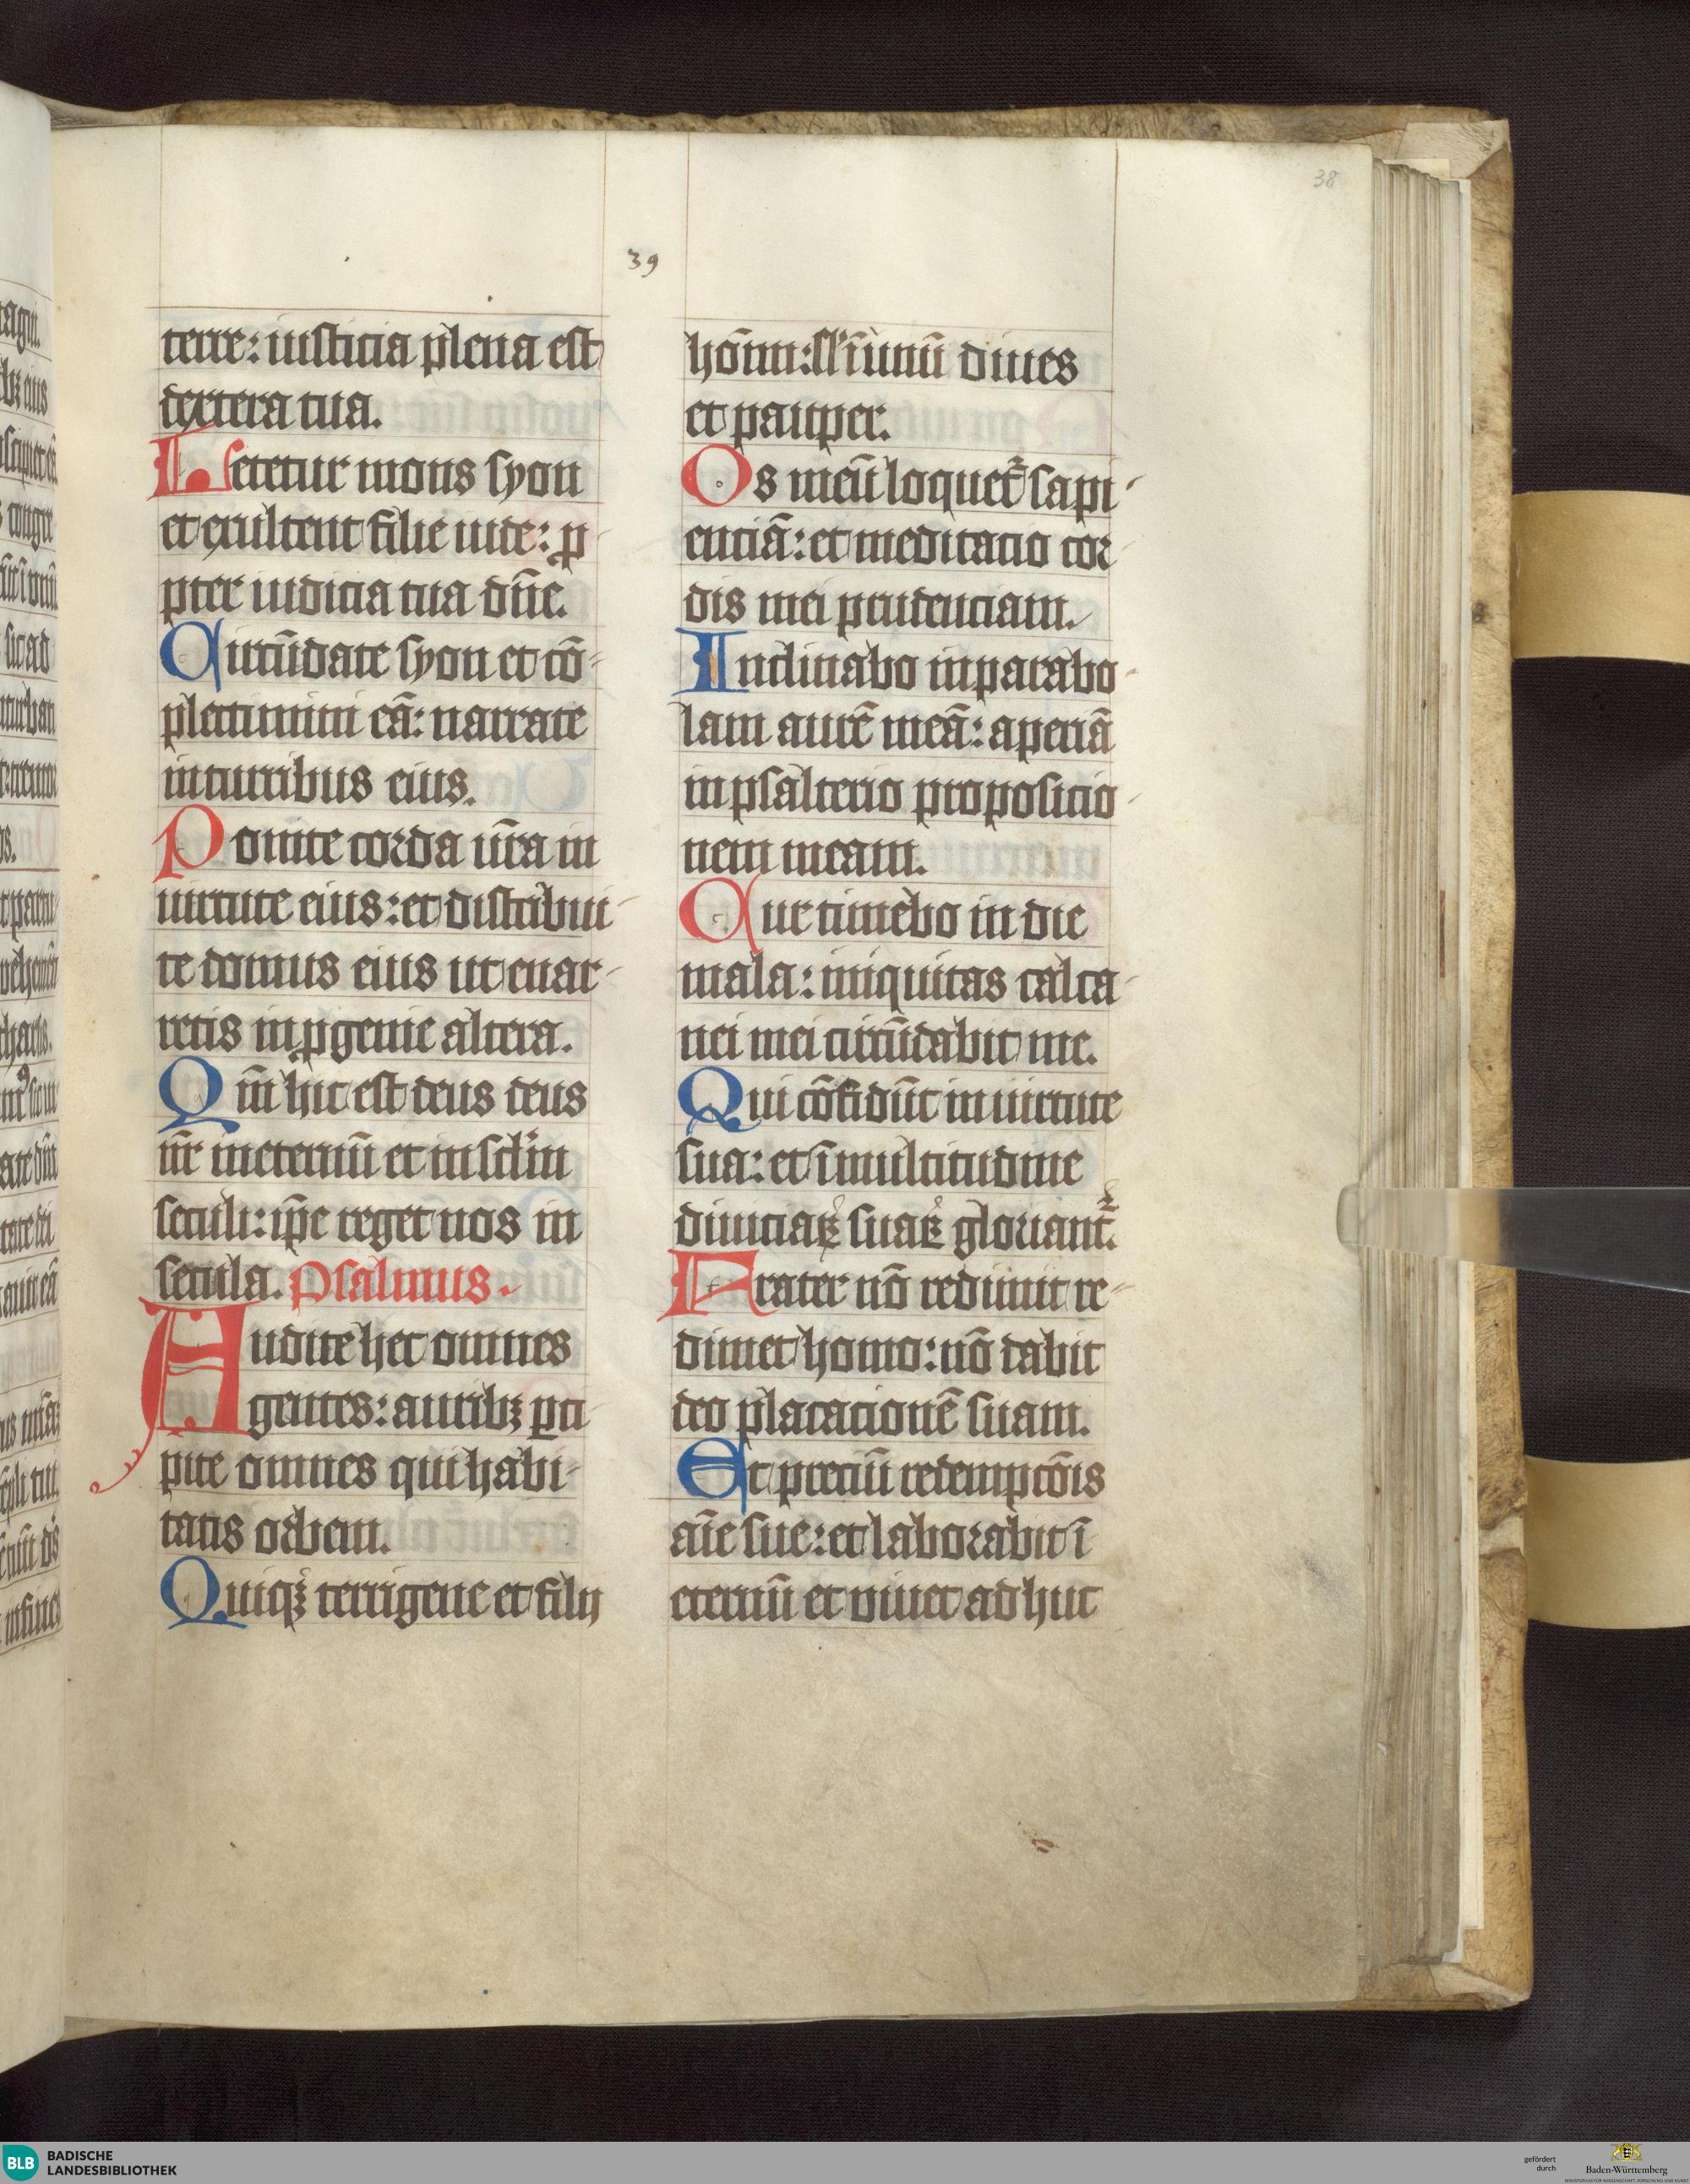 38
39
terre: iusticia plena est
dextera tua.
Letetur mons syon
et exultent filie iude: ꝓ
pter iudicia tua dn̄e.
Circūdate syon et cō-
plectimini eā: narrate
in turribus eius.
Ponite corda ur̄a in
uirtute eius: et distribui-
te domus eius ut enar-
retis in ꝓgenie altera.
Qm̄ hic est deus deus
nr̄ in eternū et in sc̄lm
seculi: ip̄e reget nos in
secula. Psalmus.
Audite hec omnes
gentes: auribꝫ ꝑci-
pite omnes qui habi-
tatis orbem.
Quiqꝫ terrigene et filij
hōim: sl̄ ī unū diues
et pauper.
Os meū loquet᷑ sapi-
enciā: et meditacio cor-
dis mei prudenciam.
Inclinabo in parabo-
lam aurē meā: aperiā
in psalterio proposicio-
nem meam.
Cur timebo in die
mala: iniquitas calca-
nei mei circūdabit me.
Qui cōfidūt in uirtute
sua: et ī multitudine
diuiciaꝝ suaꝝ gloriant᷑.
Frater nō redimit re-
dimet homo: nō dabit
deo placacionē suam.
Et preciū redempcōis
aīe sue: et laborabit ī
eternū et uiuet adhuc
BLB BADISCHE
LANDESBIBLIOTHEK
gefördert
durch
Baden-Württemberg